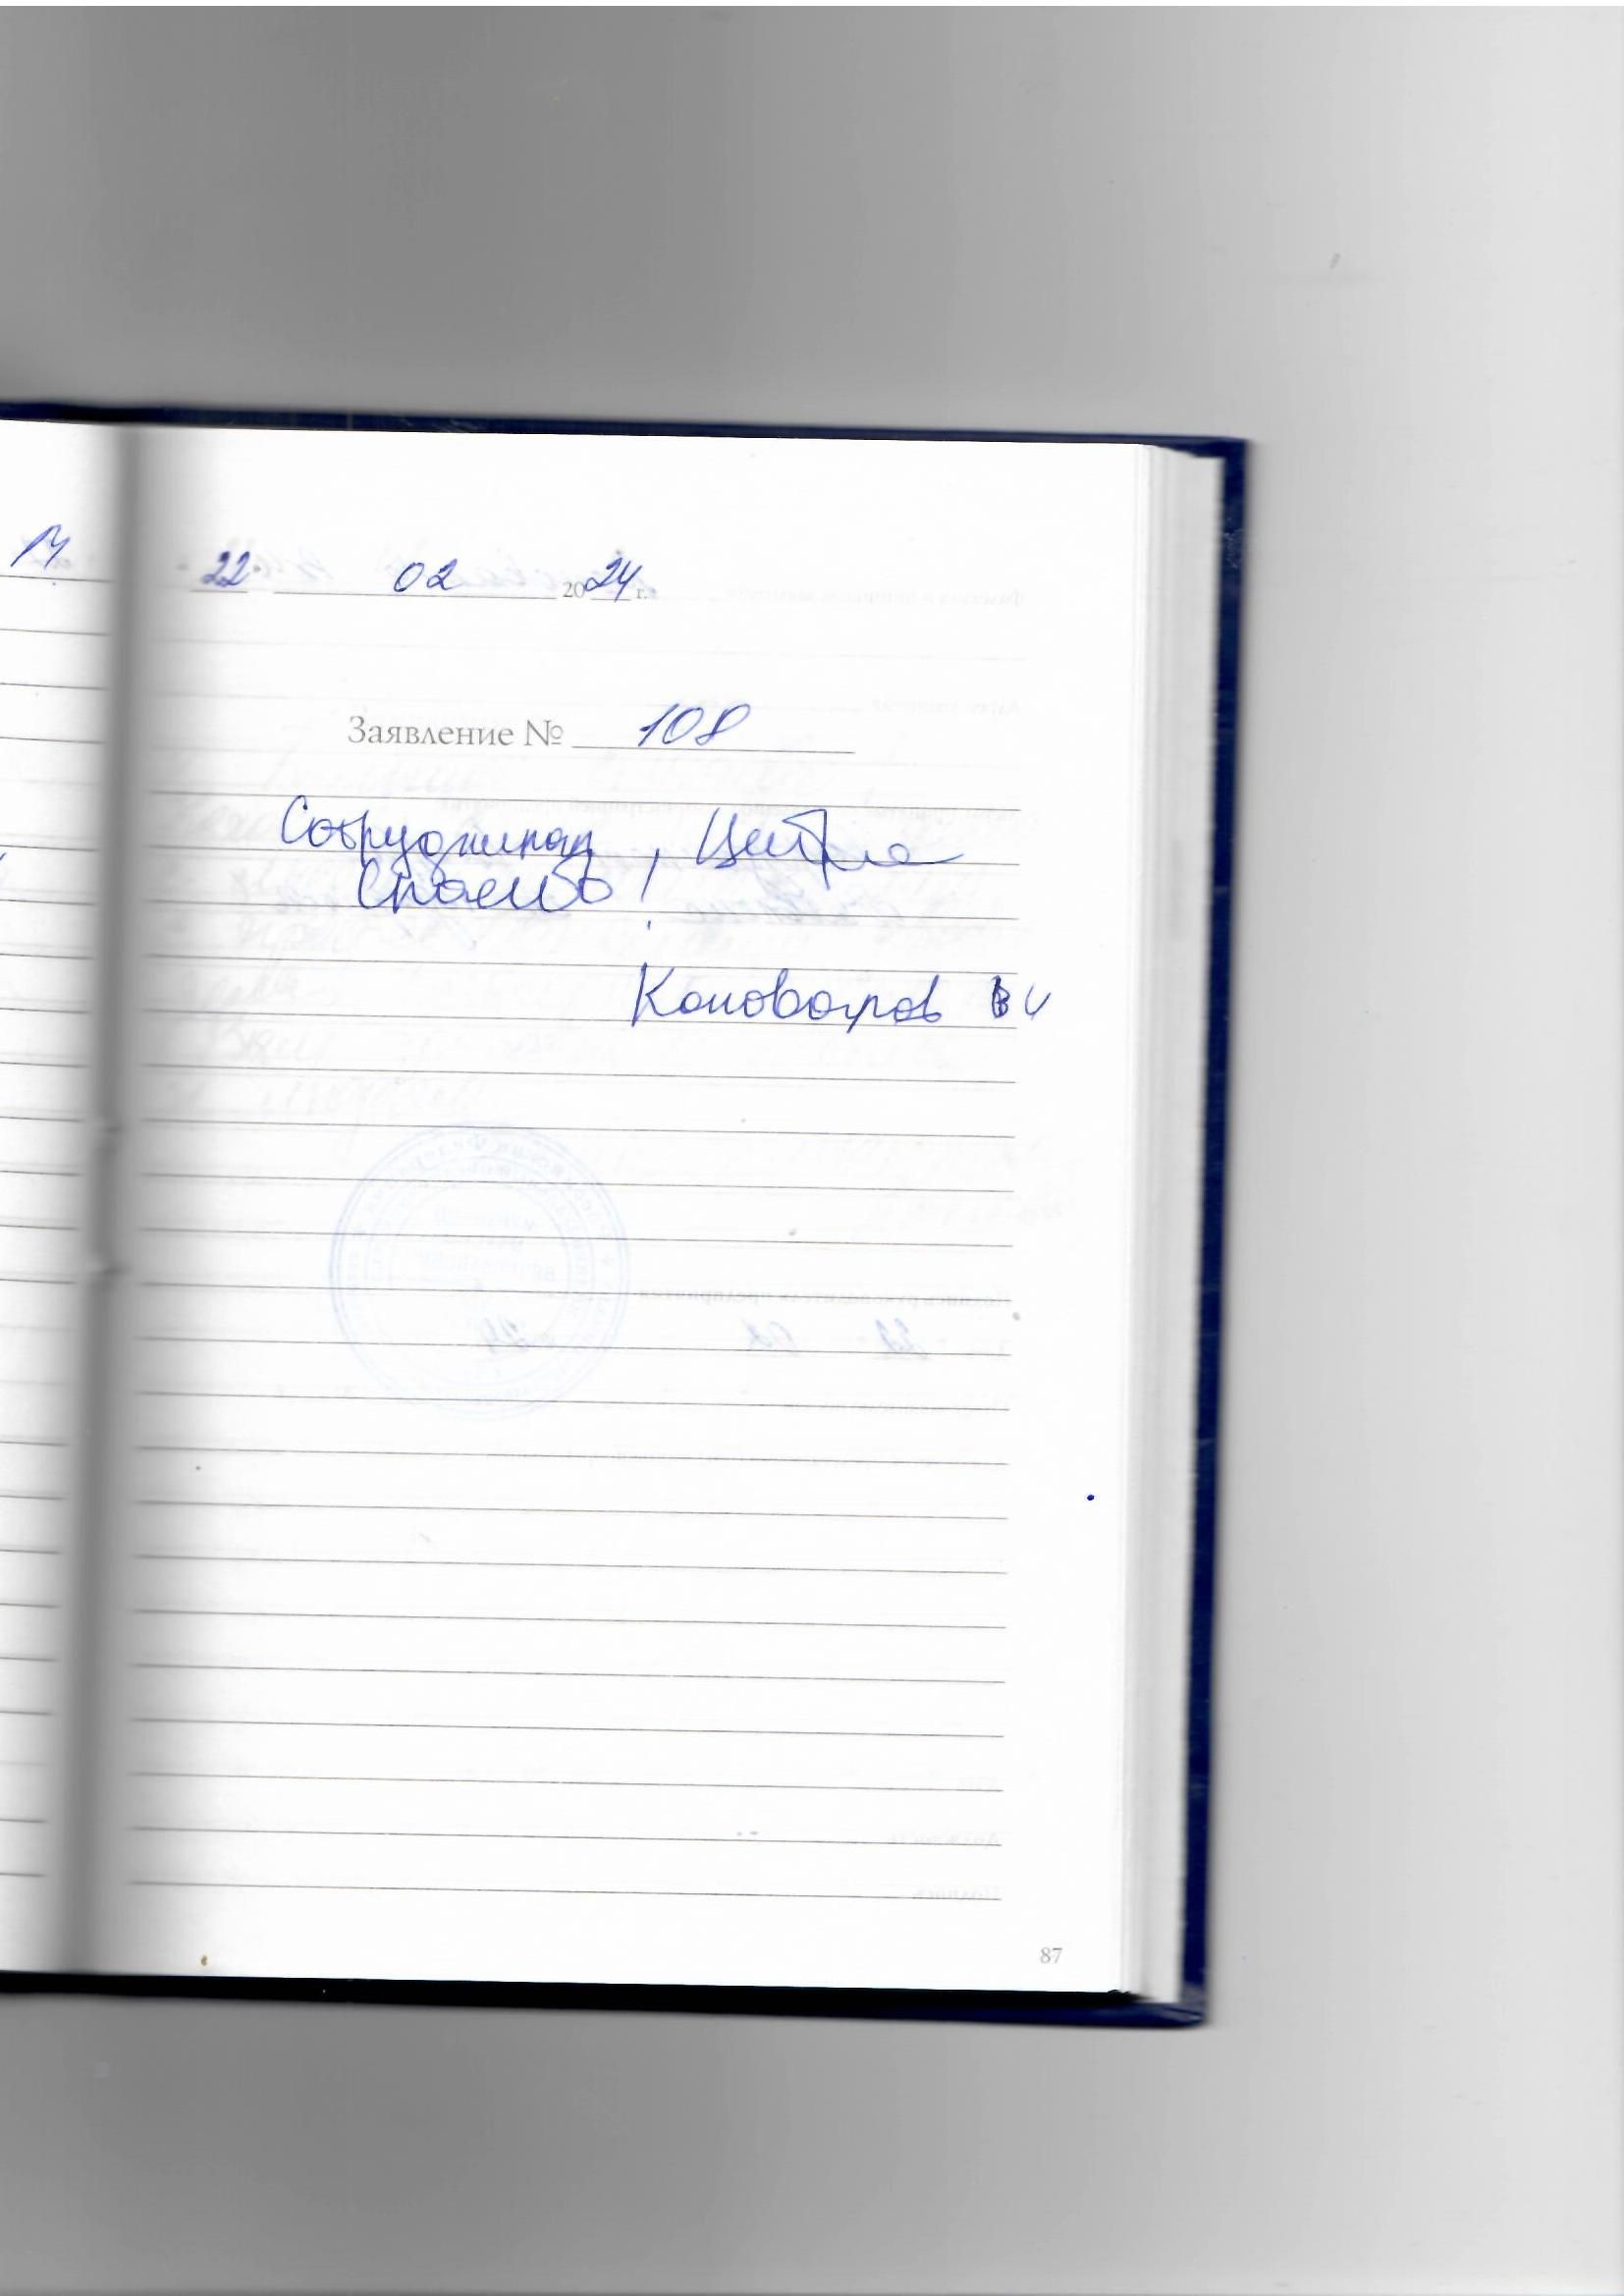 22 02 2024 г.
Заявление № 108
Сотрудникам Центра
Спасибо!
87